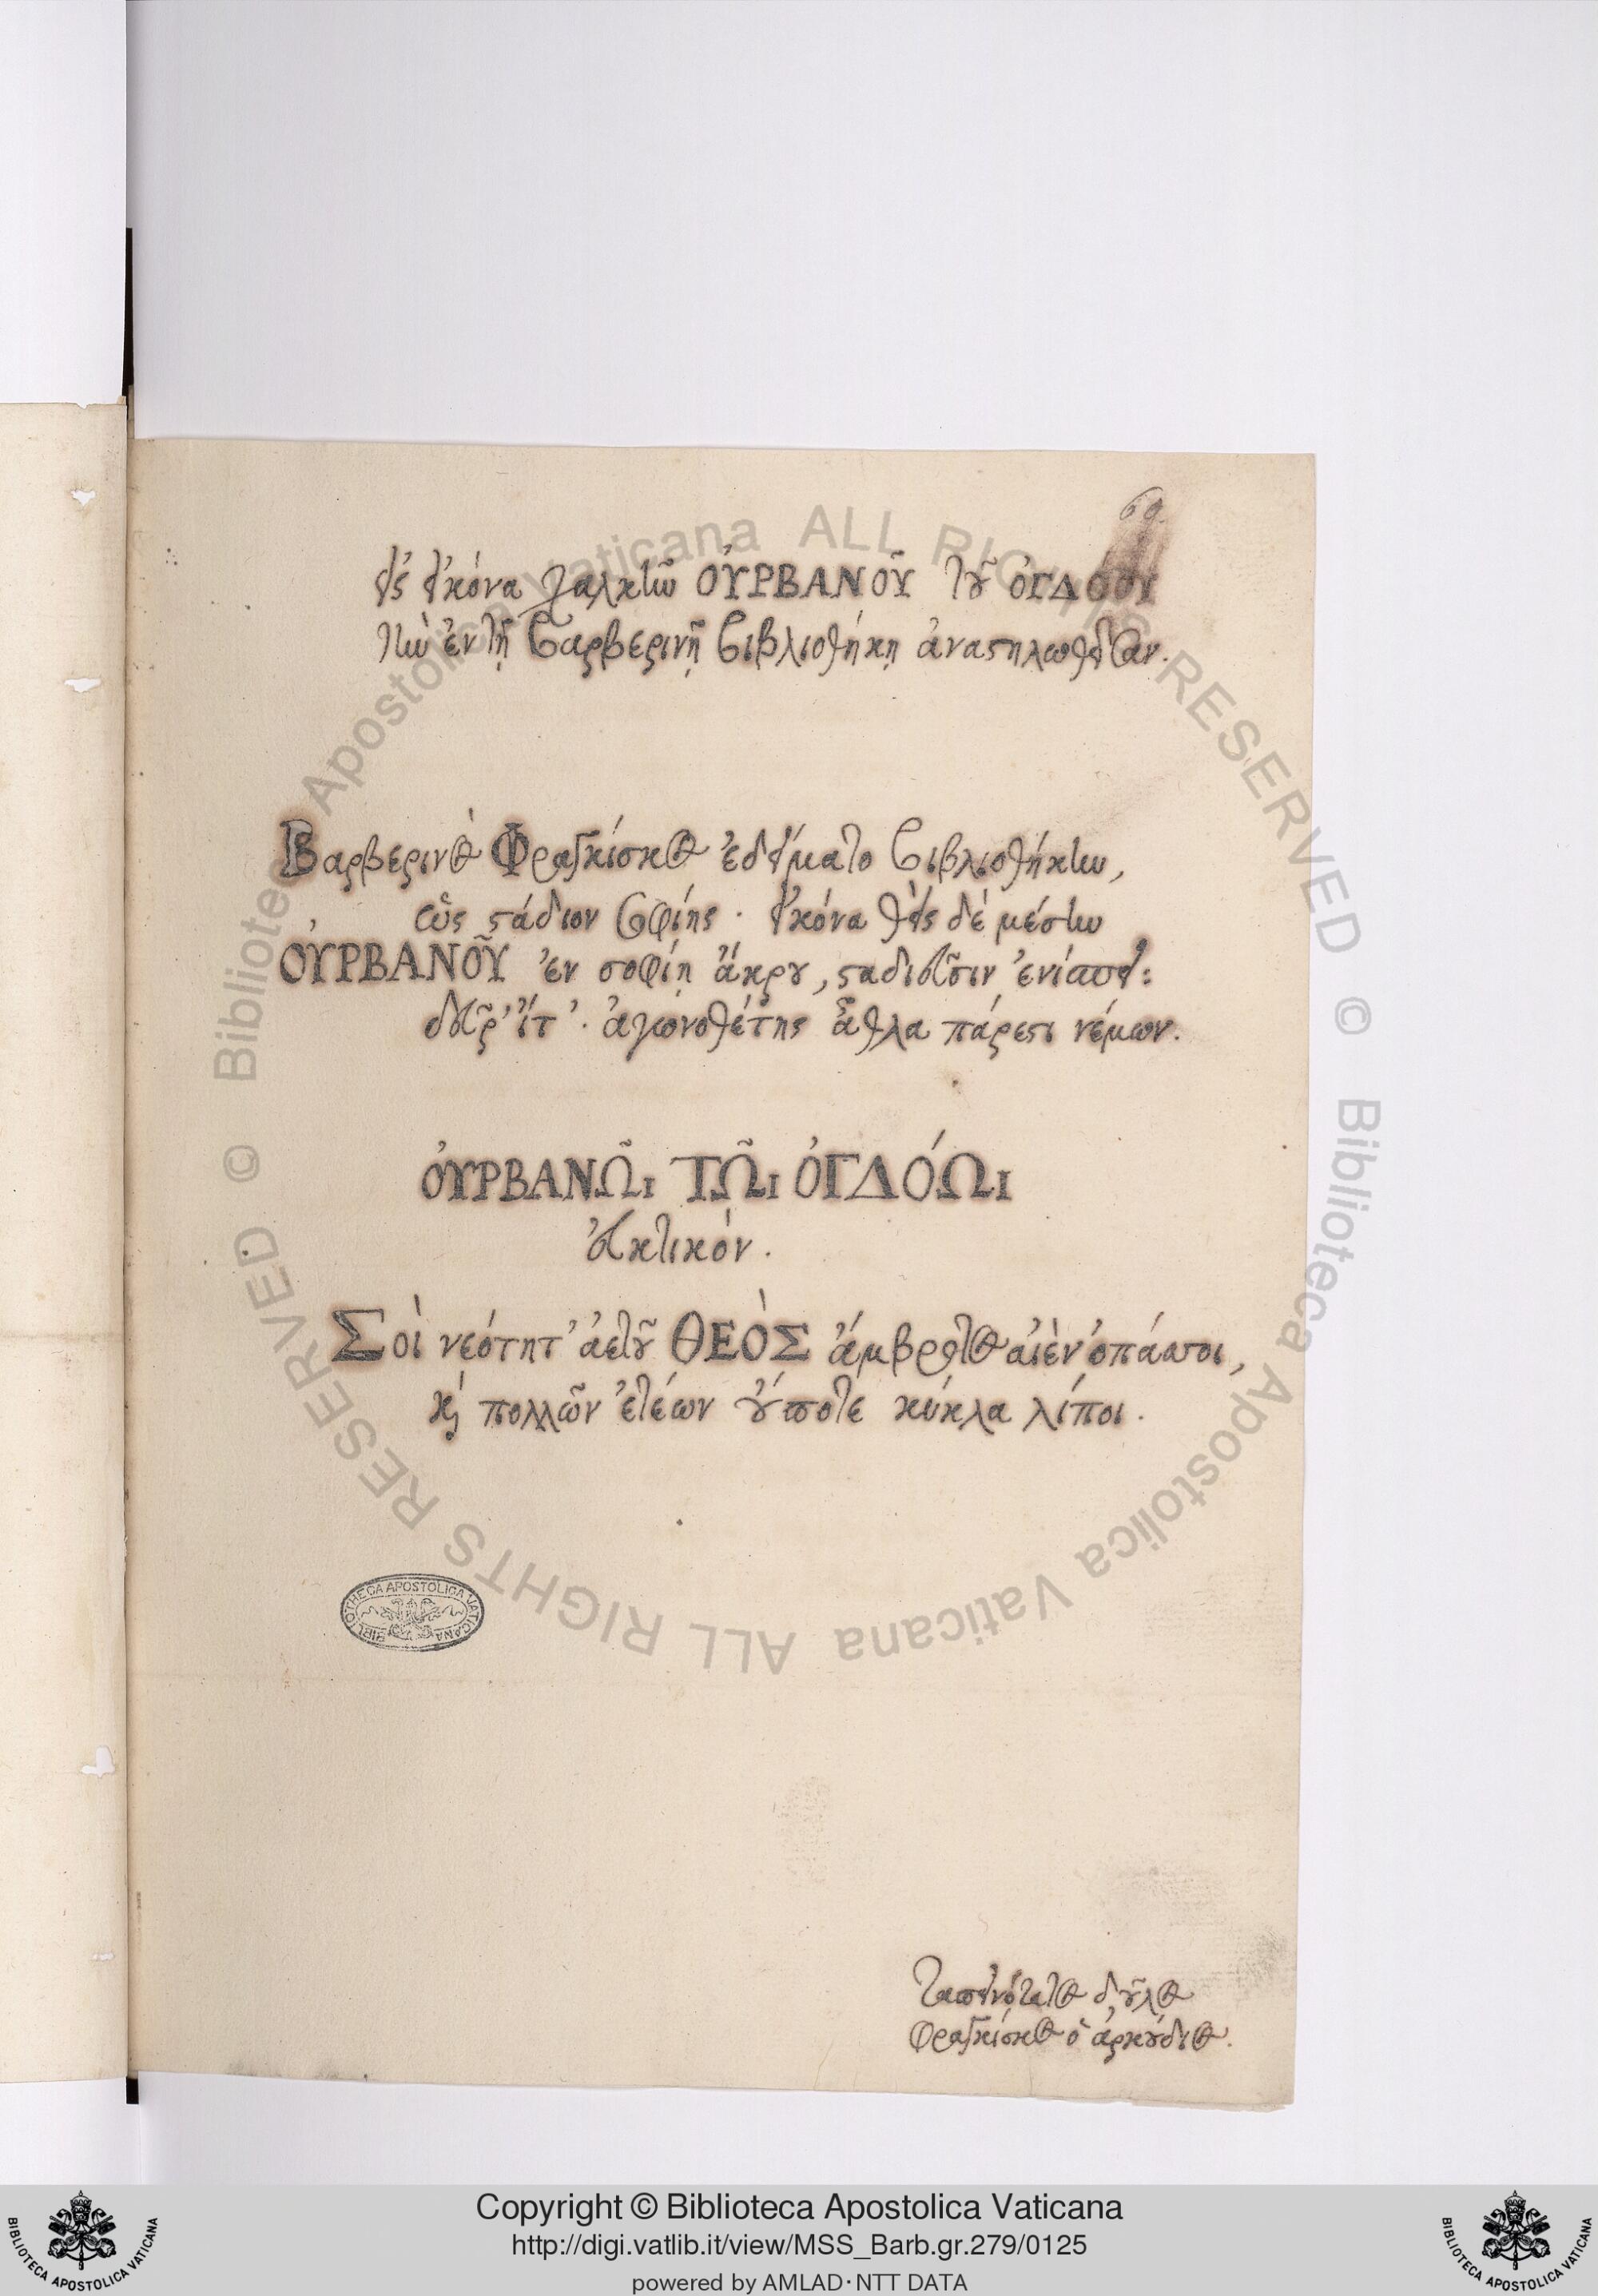 69.
εἰς εἰκόνα χαλκῆν ΟὐΡΒΑΝΟῦ τοῦ ὀΓΔΌΟΥ
τὴν ἐν τῇ Βαρβερινῇ βιβλιοθήκῃ ἀναστηλωθεῖσαν.
Βαρβερινὸς Φραγκίσκος ἐδείματο βιβλιοθήκην,
ὡς στάδιον σοφίης · εἰκόνα θεὶς δὲ μέσην
ΟὐΡΒΑΝΟῦ ἐν σοφίῃ ἄκρου, σταδιοῦσιν ἐνίσπει:
δεῦρ' ἴτ'· ἀγωνοθέτης ἆθλα πάρεστι νέμων.
ΟὐΡΒΑΝῶΙ ΤῶΙ ὀΓΔΌΩΙ
εὐκτικόν.
Σοὶ νεότητ' ἀετοῦ ΘΕὸΣ ἄμβροτος αἰὲν ὀπάσσοι,
καὶ πολλῶν ἐτέων οὔποτε κύκλα λίποι.
Ταπεινότατος δοῦλος
Φραγκίσκος ὁ ἀρκούδιος.
BIBLIOTHECA APOSTOLICA VATICANA
© Biblioteca Apostolica Vaticana ALL RIGHTS RESERVED
© Biblioteca Apostolica Vaticana ALL RIGHTS RESERVED
Copyright © Biblioteca Apostolica Vaticana
http://digi.vatlib.it/view/MSS_Barb.gr.279/0125
powered by AMLAD·NTT DATA
BIBLIOTECA APOSTOLICA VATICANA
BIBLIOTECA APOSTOLICA VATICANA